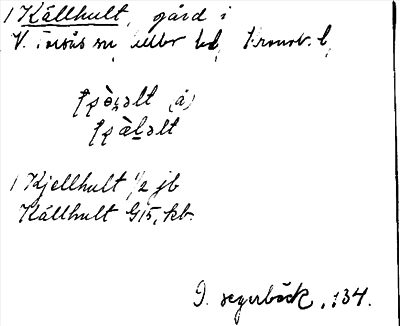 1 Källhult, gård i
V. Torsås sn, Allbo hd, Kronob. l,
(å)
1 Kjellhult 1/2 jb
Källhult G15, kb.
I. Segerbäck, 134.